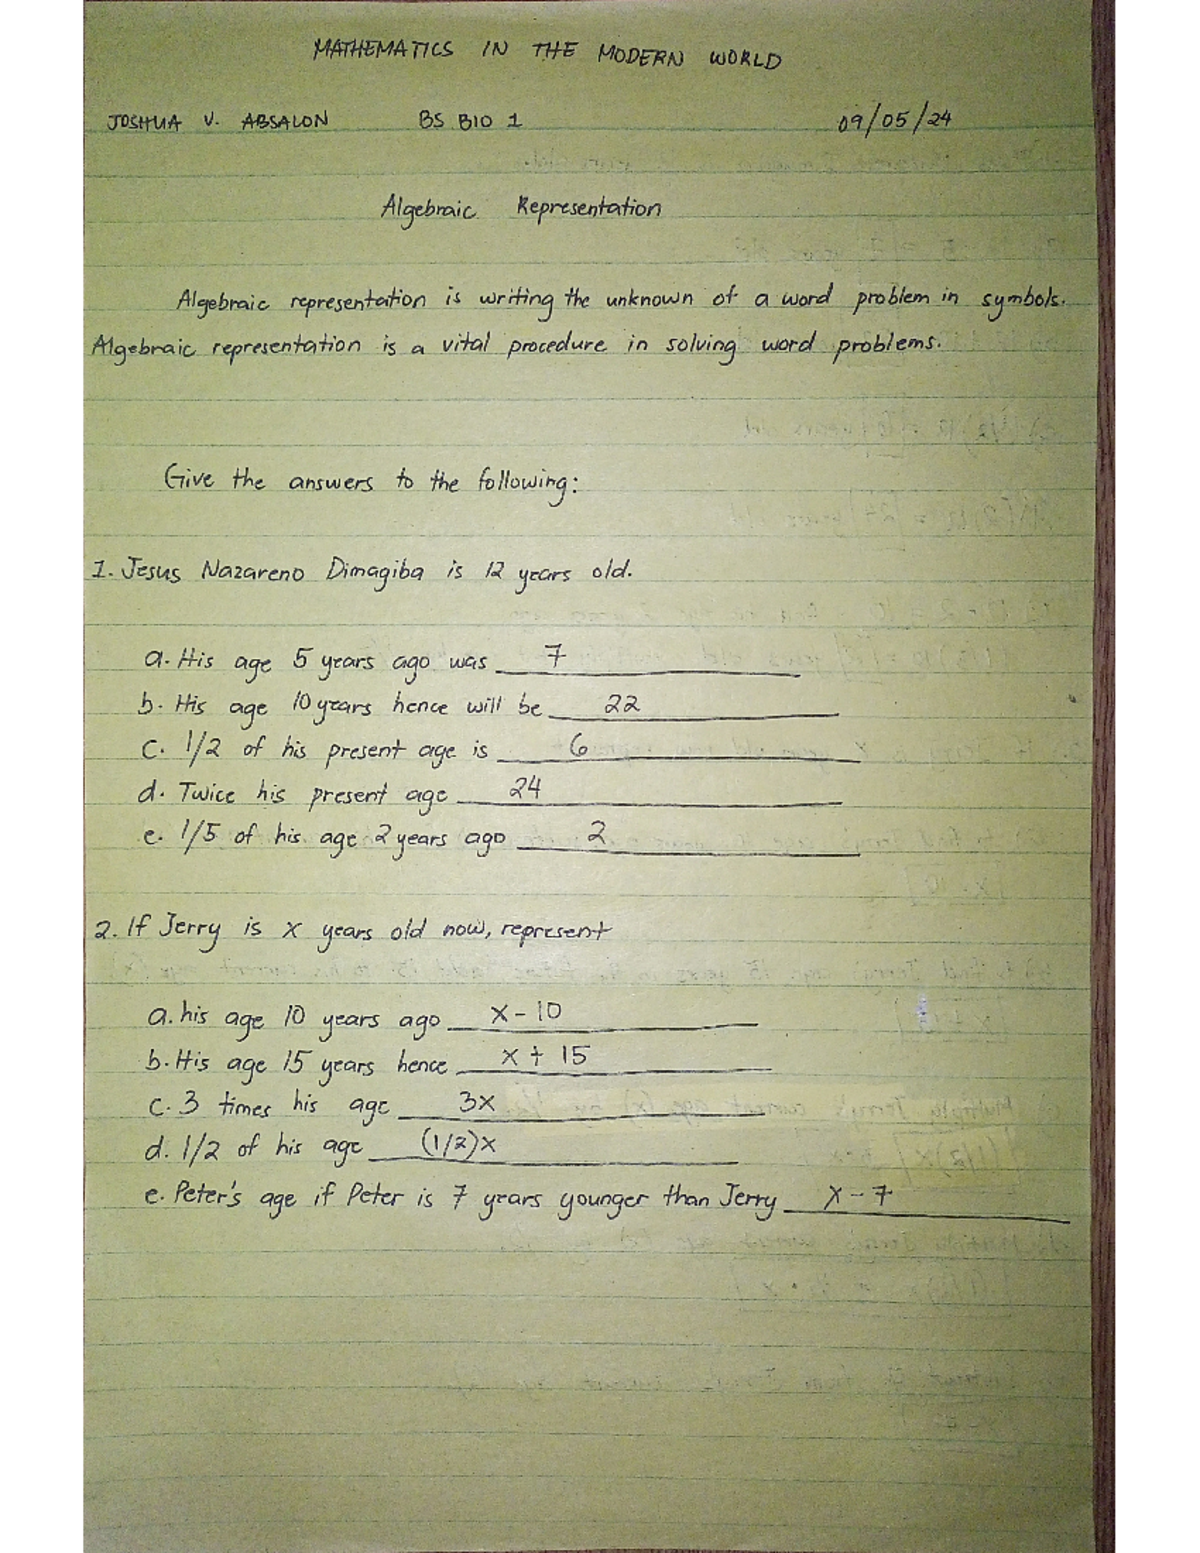 MATHEMATICS IN THE MODERN WORLD
JOSHUA V. ABSALON BS BIO 1 09/05/24
Algebraic Representation
Algebraic representation is writing the unknown of a word problem in symbols.
Algebraic representation is a vital procedure in solving word problems.
Give the answers to the following:
1. Jesus Nazareno Dimagiba is 12 years old.
a. His age 5 years ago was 7
b. His age 10 years hence will be 22
c. 1/2 of his present age is 6
d. Twice his present age 24
e. 1/5 of his age 2 years ago 2
2. If Jerry is x years old now, represent
a. his age 10 years ago x - 10
b. His age 15 years hence x + 15
c. 3 times his age 3x
d. 1/2 of his age (1/2)x
e. Peter's age if Peter is 7 years younger than Jerry x - 7